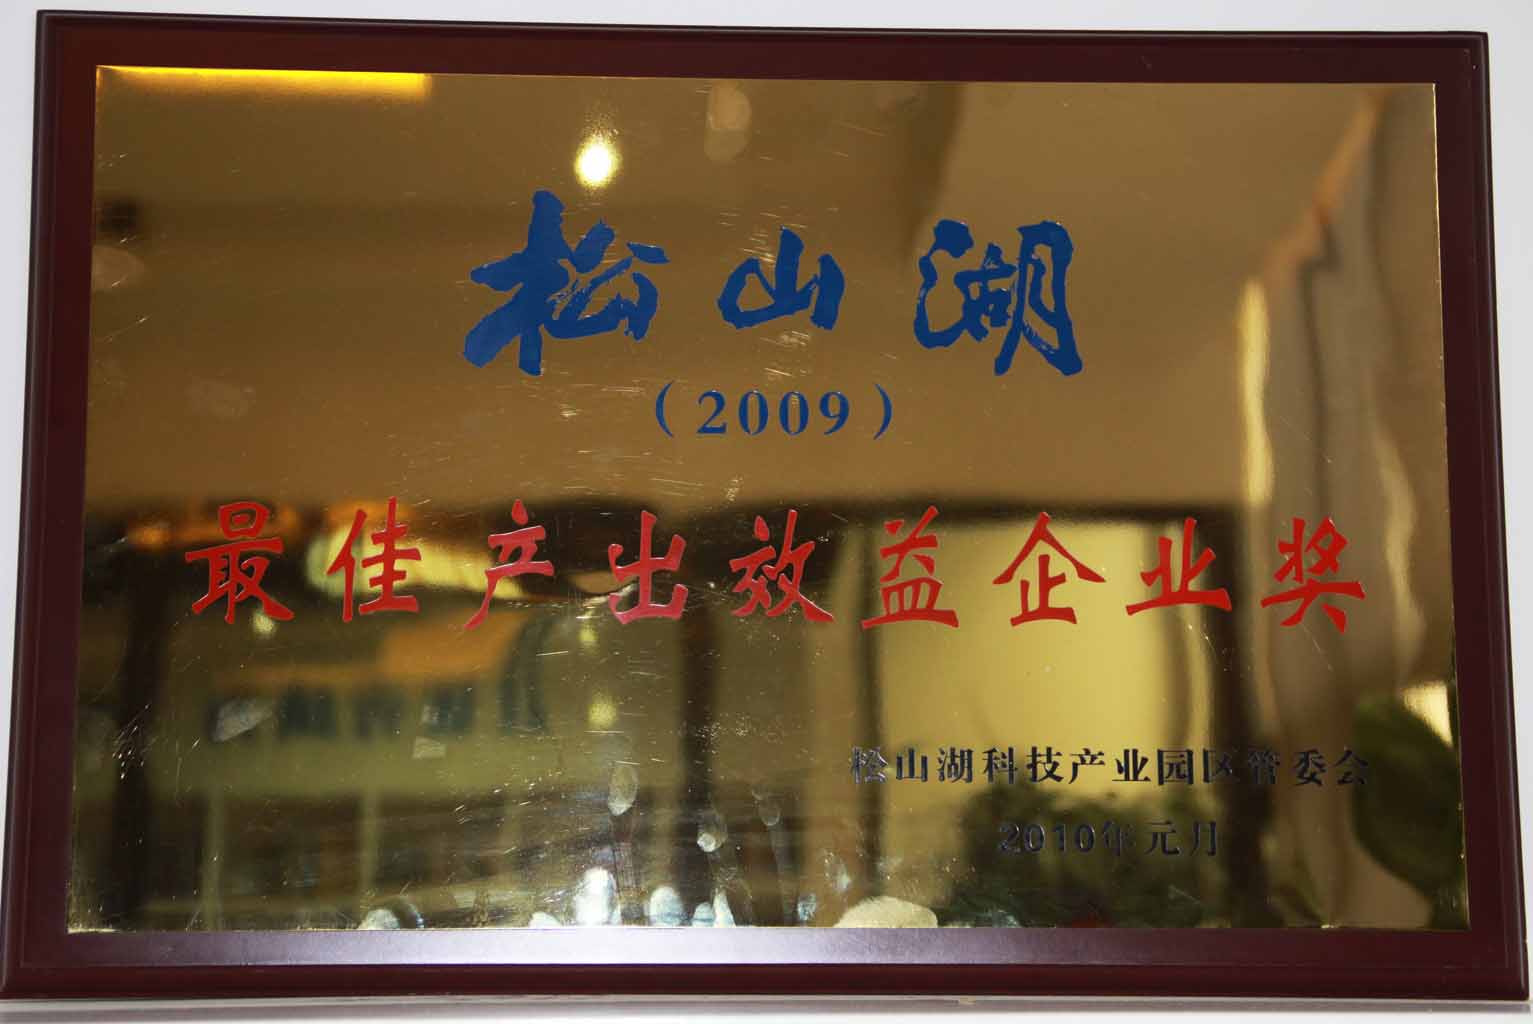 松山湖
（2009）
最佳产出效益企业奖
松山湖科技产业园区管委会
2010年元月